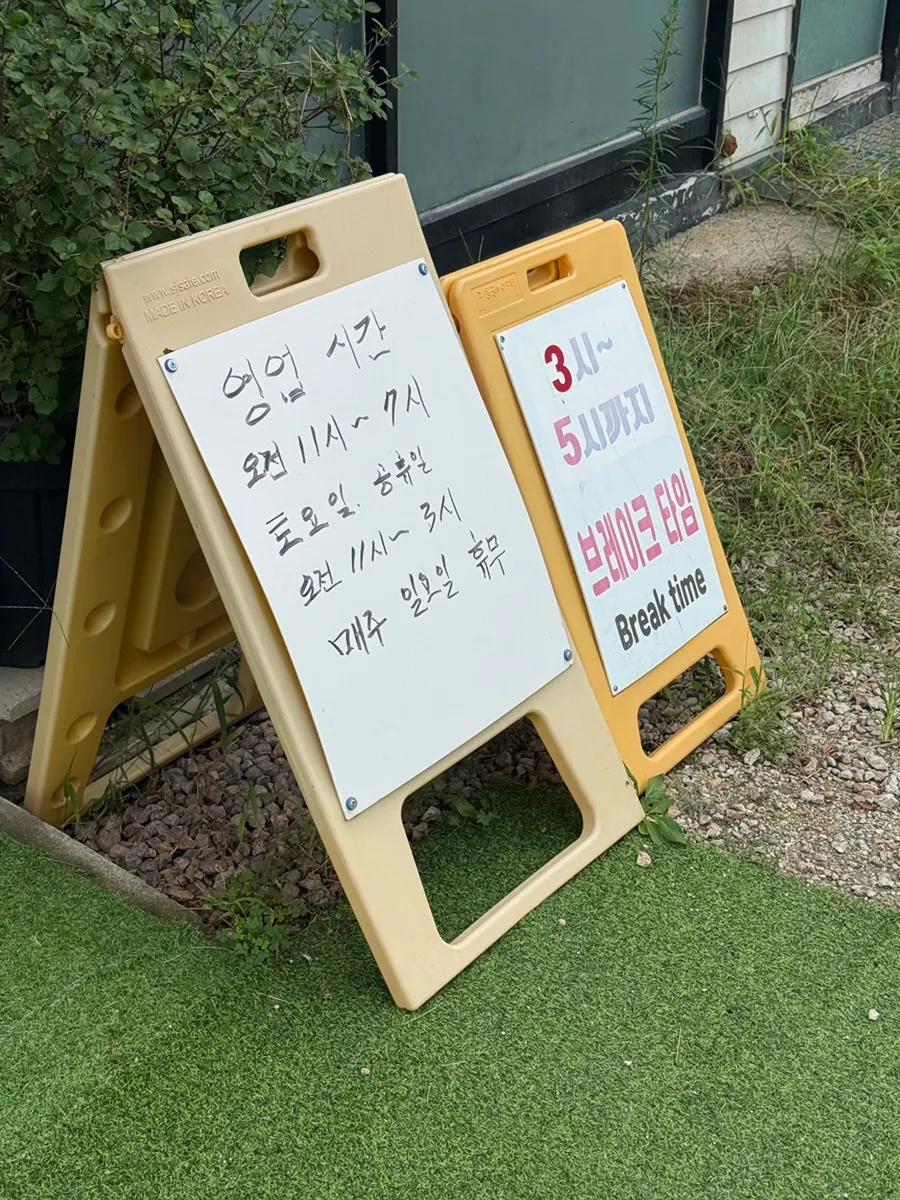 www.sjsafe.com
MADE IN KOREA
영업 시간
오전 11시~ 7시
토요일. 공휴일
오전 11시~ 3시
매주 일요일 휴무
3시~
5시까지
브레이크 타임
Break time